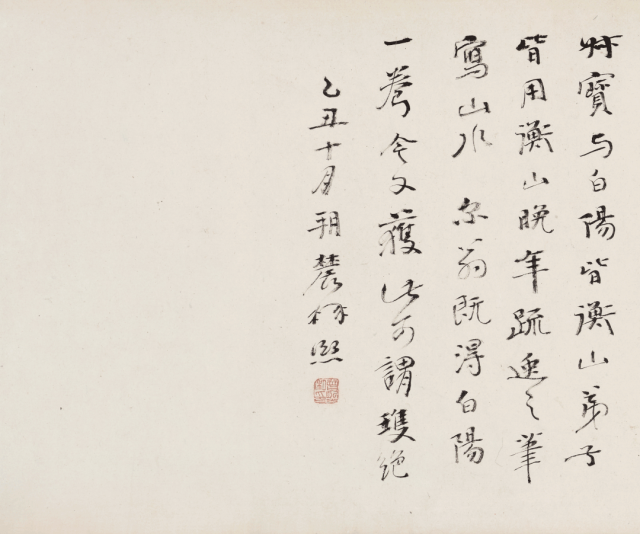 叔寶与白陽皆衡山弟子
皆用衡山晚年疏逸之筆
寫山水 翁既淂白陽
一卷今又獲此可謂雙絕
乙丑十月朔農髯熙